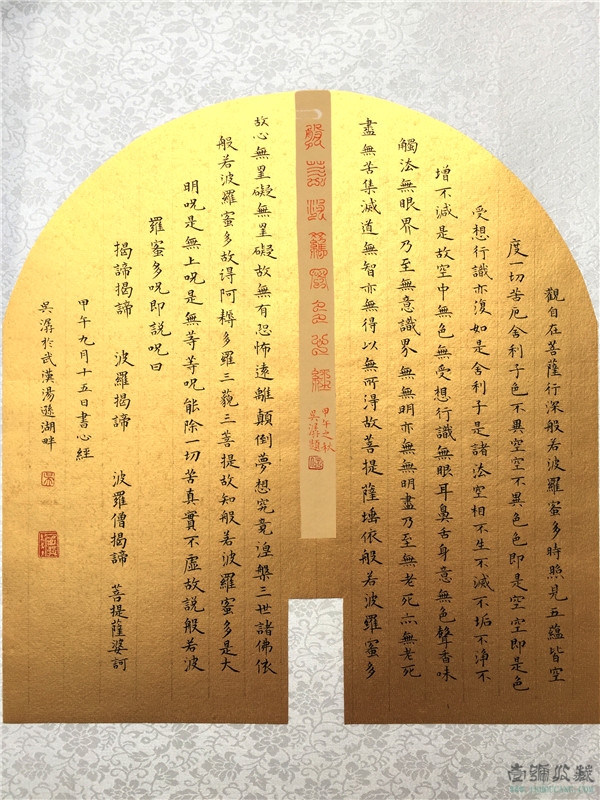 觀自在菩薩行深般若波羅蜜多時照見五蘊皆空
度一切苦厄舍利子色不異空空不異色色即是空空即是色
受想行識亦復如是舍利子是諸法空相不生不滅不垢不淨不
增不減是故空中無色無受想行識無眼耳鼻舌身意無色聲香味
觸法無眼界乃至無意識界無無明亦無無明盡乃至無老死亦無老死
盡無苦集滅道無智亦無得以無所得故菩提薩埵依般若波羅蜜多
般若波羅蜜多心經
甲午之秋
吳潺題
故心無罣礙無罣礙故無有恐怖遠離顛倒夢想究竟涅槃三世諸佛依
般若波羅蜜多故得阿耨多羅三藐三菩提故知般若波羅蜜多是大
明呪是無上呪是無等等呪能除一切苦真實不虛故説般若波
羅蜜多呪即説呪曰
揭諦揭諦 波羅揭諦 波羅僧揭諦 菩提薩婆訶
甲午九月十五日書心經
吳潺於武漢湯遜湖畔